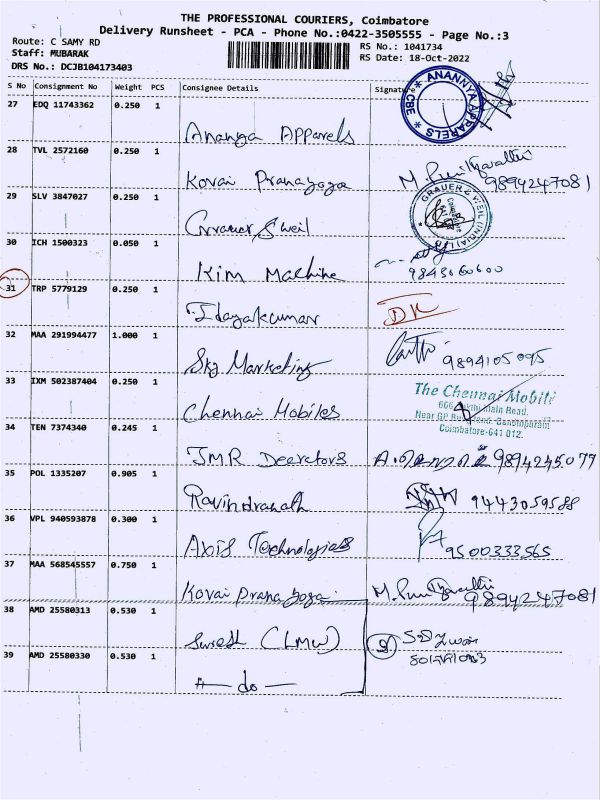 THE PROFESSIONAL COURIERS, Coimbatore
Delivery Runsheet - PCA - Phone No.:0422-3505555 - Page No.:3
Route: C SAMY RD
RS No.: 1041734
Staff: MUBARAK
RS Date: 18-Oct-2022
DRS No.: DCJB104173403
S No Consignment No Weight PCS Consignee Details Signature
ANANNYA APPARELS CBE
27 EDQ 11743362 0.250 1
Ananya Apparels
28 TVL 2572160 0.250 1
Kovai Pranayoga M. Punithavathi
9894247081
29 SLV 3847027 0.250 1
GRAUER & WEIL (INDIA) L
Grauer & Weil
30 ICH 1500323 0.050 1
Kim Machine 9843060600
31 TRP 5779129 0.250 1
Idayakumar DK
32 MAA 291994477 1.000 1
Skg Marketing 9894105095
33 IXM 502387404 0.250 1
Chennai Mobiles
The Chennai Mobile
Main Road.
Near GP
Coimbatore-641 012.
34 TEN 7374340 0.245 1
JMR Decrators 9894245077
35 POL 1335207 0.905 1
Ravindranath 9443059588
36 VPL 940593878 0.300 1
Axis Technologies 9500333565
37 MAA 568545557 0.750 1
Kovai Pranayoga. M. Punithavathi
9894247081
38 AMD 25580313 0.530 1
Suresh (LMW)
39 AMD 25580330 0.530 1
— do —